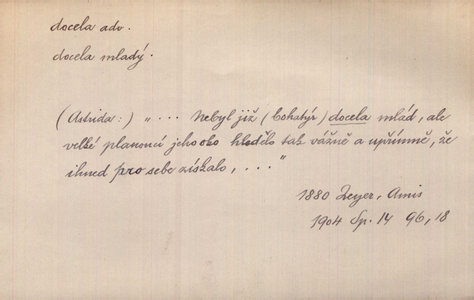 docela adv.
docela mladý.
(Astrida:) „ ... Nebyl již (bohatýr) docela mlád, ale
velké planoucí jeho oko hledělo tak vážně a upřímně, že
ihned pro sebe získalo, ... "
1880 Zeyer, Amis
1904 Sp. 14 96, 18